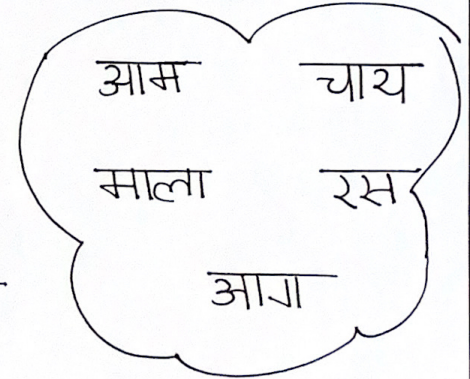 आम चाय
माला रस
आग